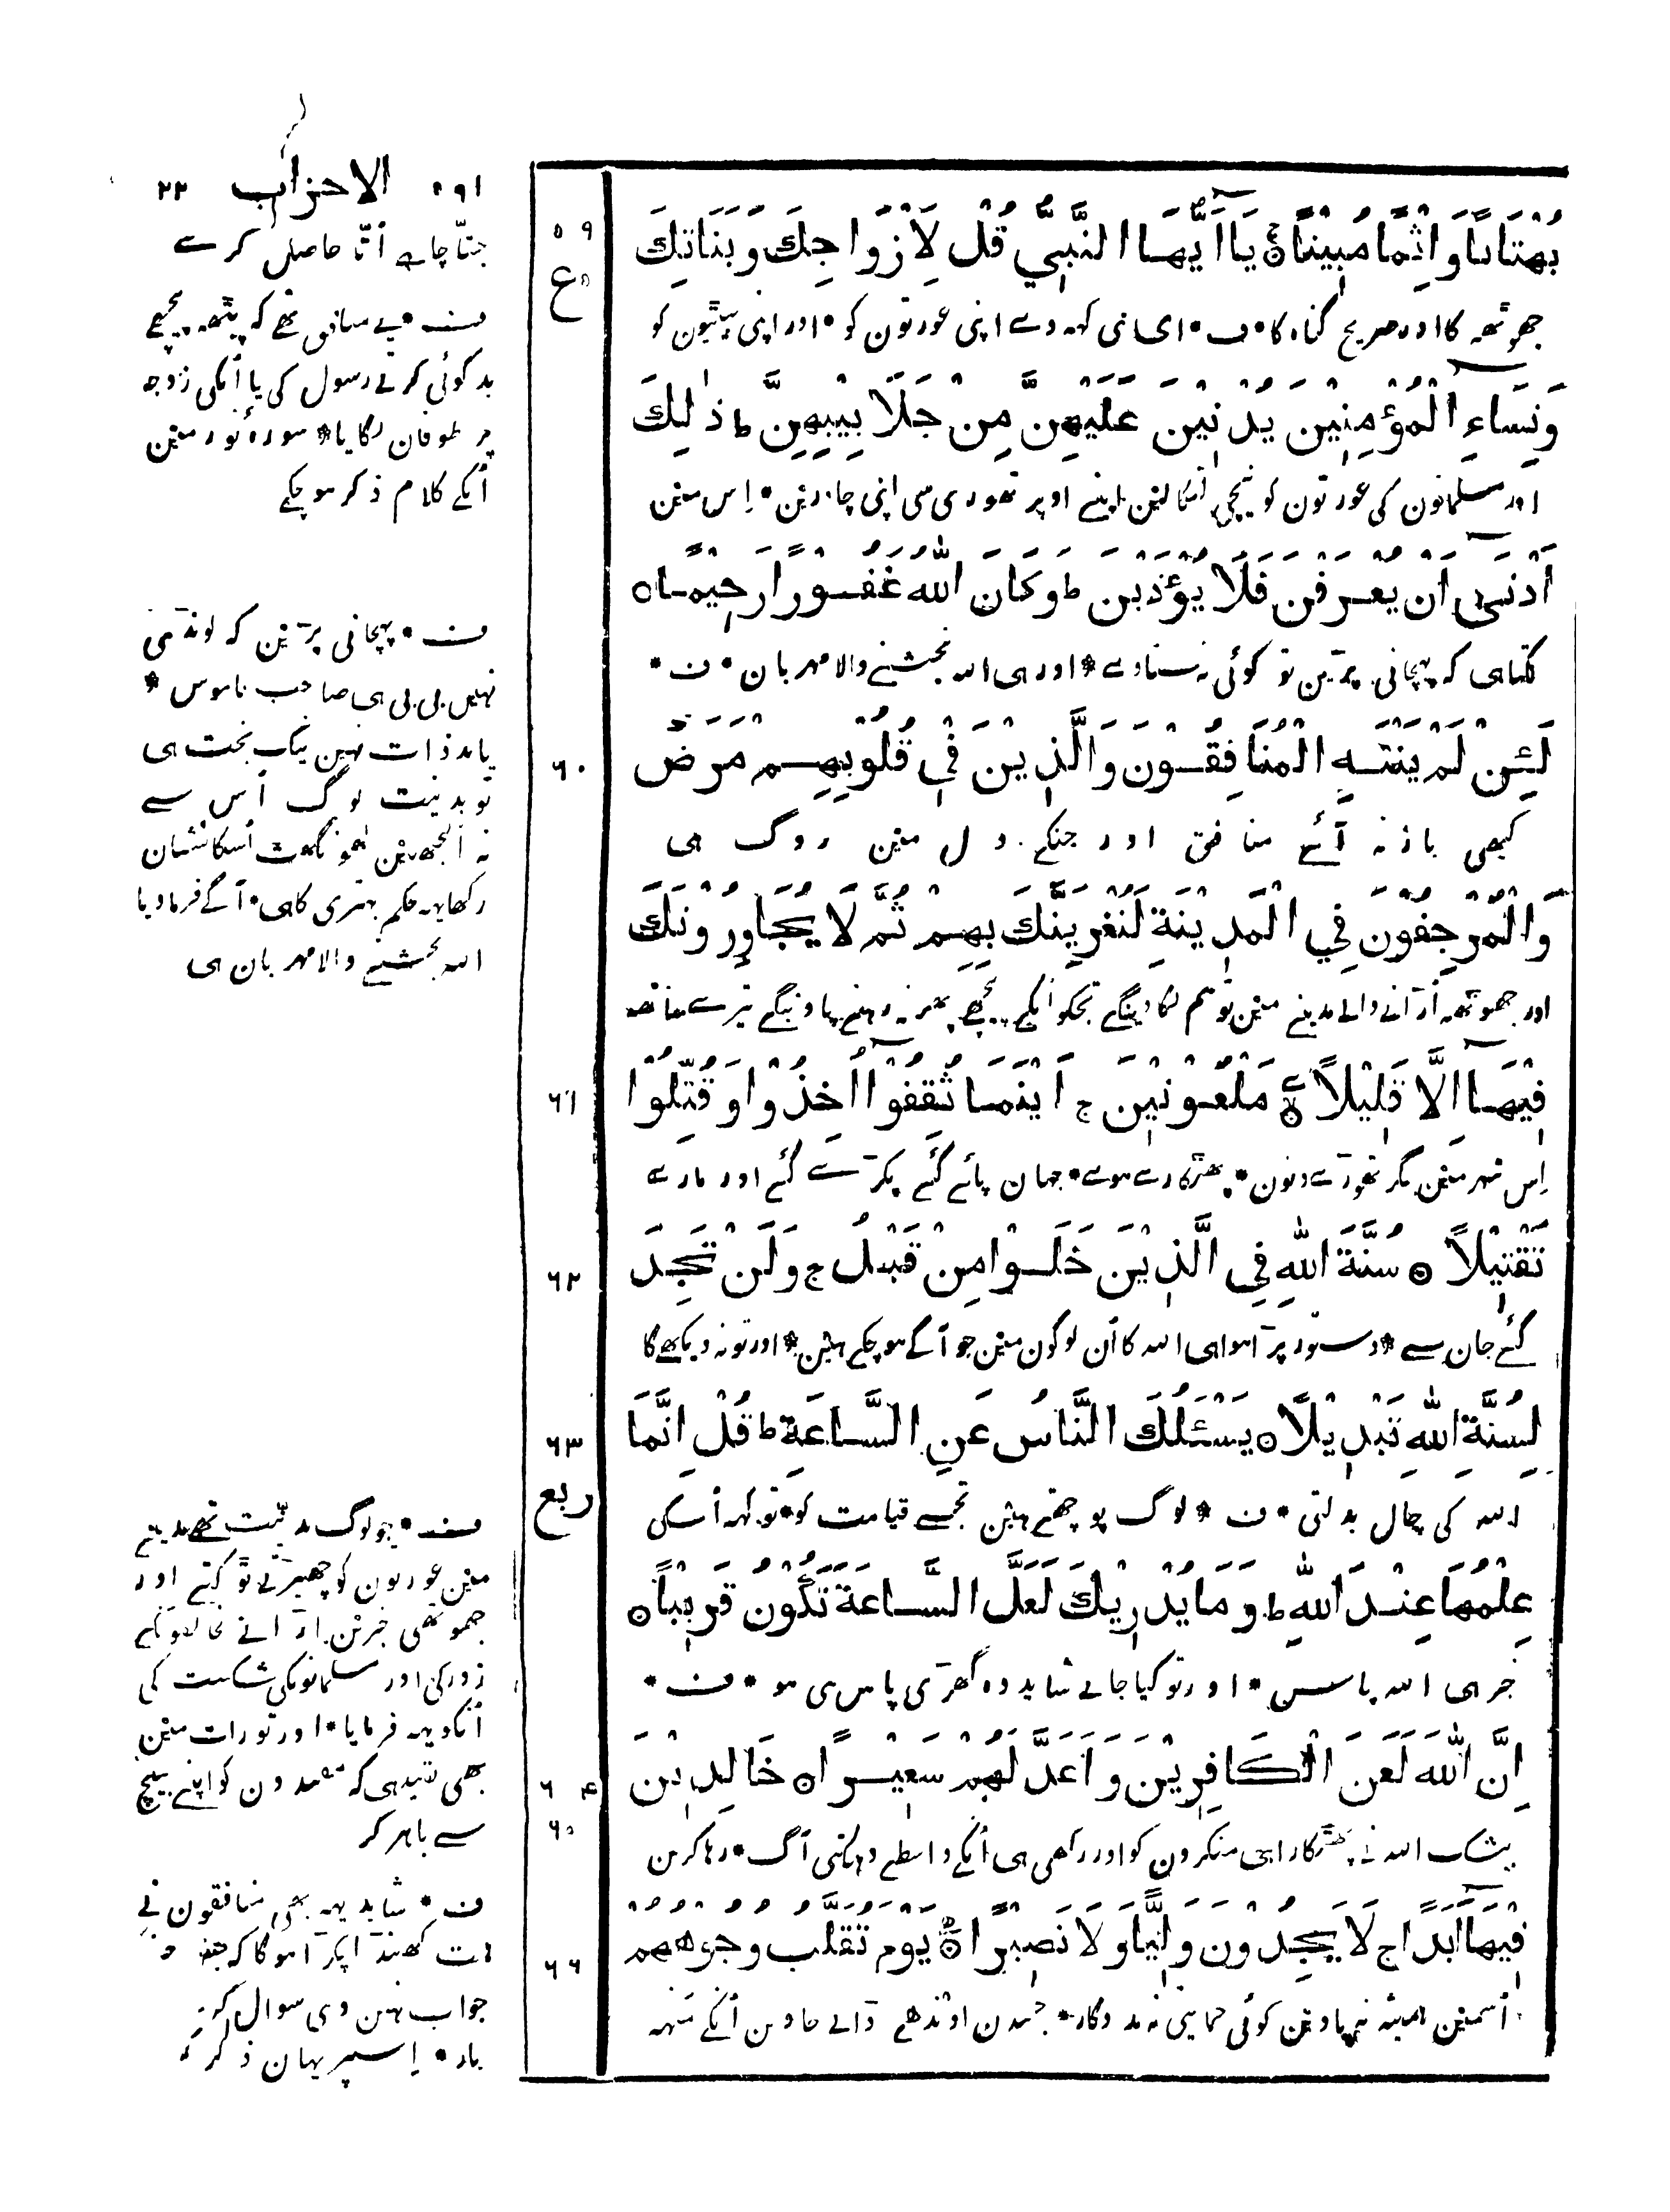 الاحزاب ٢٢
بُهْتَانًا وَاِثْمًا مُبِيْنًا ۝ يَاۤاَيُّهَا النَّبِيُّ قُلْ لِاَزْوَاجِكَ وَبَنَاتِكَ
٥٩
ع
جھوتھہ کا اور صریح گناہ کا * ف * ای نبی کہہ دے اپنی عورتون کو * اور اپنی بیٹیون کو
وَنِسَاءِ الْمُؤْمِنِيْنَ يُدْنِيْنَ عَلَيْهِنَّ مِنْ جَلَابِيْبِهِنَّ ط ذٰلِكَ
اور مسلمانون کی عورتون کو نیچی لٹکا لین اپنے اوپر تھوری سی اپنی چادرین * اِس مین
اَدْنٰىۤ اَنْ يُعْرَفْنَ فَلَا يُؤْذَيْنَ ط وَكَانَ اللّٰهُ غَفُوْرًا رَحِيْمًا ۝
لگتا ہی کہ پہچانی پرین تو کوئی نہ ستاوے * اور ہی اللہ بخشنے والا مہربان * ف *
لَئِنْ لَمْ يَنْتَهِ الْمُنَافِقُوْنَ وَالَّذِيْنَ فِيْ قُلُوْبِهِمْ مَرَضٌ
٦٠
کبھی باز نہ آئے منافق اور جنکے دل مین روگ ہی
وَالْمُرْجِفُوْنَ فِي الْمَدِيْنَةِ لَنُغْرِيَنَّكَ بِهِمْ ثُمَّ لَا يُجَاوِرُوْنَكَ
اور جھوٹھہ اُرانے والے مدینے مین تو ہم لگا دینگے تجکو اُنکے پیچھے پھر نہ رہنے پاوینگے تیرے ساتھہ
فِيْهَاۤ اِلَّا قَلِيْلًا ۝ مَلْعُوْنِيْنَ ج اَيْنَمَا ثُقِفُوْۤا اُخِذُوْا وَقُتِّلُوْا
٦١
اِس شہر مین مگر تھورے دنون * پھٹکارے ہوے * جہان پائے گئے پکرے گئے اور مارے
تَقْتِيْلًا ۝ سُنَّةَ اللّٰهِ فِي الَّذِيْنَ خَلَوْا مِنْ قَبْلُ ج وَلَنْ تَجِدَ
٦٢
گئے جان سے * دستور پرا ہوا ہی اللہ کا اُن لوگون مین جو آگے ہو چکے ہین * اور تو نہ دیکھے گا
لِسُنَّةِ اللّٰهِ تَبْدِيْلًا ۝ يَسْئَلُكَ النَّاسُ عَنِ السَّاعَةِ ط قُلْ اِنَّمَا
٦٣
ربع
اللہ کی چال بدلتی * ف * لوگ پوچھتے ہین تجسے قیامت کو * تو کہہ اُسکی
عِلْمُهَا عِنْدَ اللّٰهِ ط وَمَا يُدْرِيْكَ لَعَلَّ السَّاعَةَ تَكُوْنُ قَرِيْبًا ۝
خبر ہی اللہ پاس * اور تو کیا جانے شاید وہ گھری پاس ہی ہو * ف *
اِنَّ اللّٰهَ لَعَنَ الْكَافِرِيْنَ وَاَعَدَّ لَهُمْ سَعِيْرًا ۝ خَالِدِيْنَ
٦٤
٦٥
بیشک اللہ نے پھٹکارا ہی منکرون کو اور رکھی ہی اُنکے واسطے دہکتی آگ * رہا کرین
فِيْهَاۤ اَبَدًا ج لَا يَجِدُوْنَ وَلِيًّا وَلَا نَصِيْرًا ۝ يَوْمَ تُقَلَّبُ وُجُوْهُهُمْ
٦٦
اُسمین ہمیشہ نہ پاوین کوئی حمایتی نہ مددگار * جسدن اوندھے ڈالے جاوین اُنکے منہہ
جتنا چاہے اُتنا حاصل کرے
ف * یے منافق تھے کہ پیٹھہ پیچھے
بدگوئی کرتے رسول کی یا اُنکی زوجہ
پر طوفان لگایا * سورہ نور مین
اُنکے کلام ذکر ہو چکے
ف * پہچانی پرین کہ لونڈی
نہین بی بی ہی صاحب ناموس *
یا بدذات نہین نیک بخت ہی
تو بدنیت لوگ اُس سے
نہ اُلجھین گھونگھٹ اُسکا نشان
رکھا یہہ حکم بہتری کا ہی * آگے فرما دیا
اللہ بخشنے والا مہربان ہی
ف * جو لوگ بدنیت تھے مدینے
مین عورتون کو چھیرتے ٹوکتے اور
جھوٹھی خبرین اُراتے مخالفونکے
زور کی اور مسلمانونکی شکست کی
اُنکو یہہ فرمایا * اور تورات مین
بھی تقید ہی کہ مفسدون کو اپنے بیچ
سے باہر کر
ف * شاید یہہ بھی منافقون نے
ہت کھنڈا پکرا ہوگا کہ جسکا
جواب نہین وہی سوال کرین
بار * اِسپر یہان ذکر